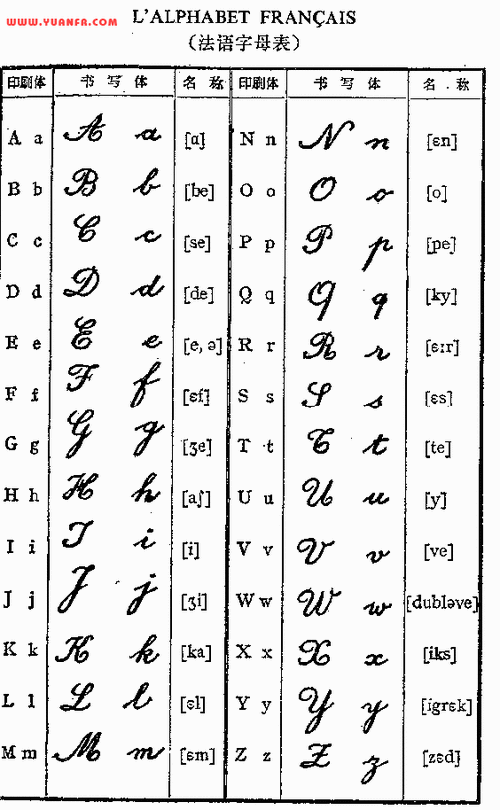 L'ALPHABET FRANÇAIS
WWW.YUANFA.COM
(法语字母表)
印刷体 书写体 名称 印刷体 书写体 名.称
A a A a [ɑ] N n N n [ɛn]
B b B b [be] O o O o [o]
C c C c [se] P p P p [pe]
D d D d [de] Q q Q q [ky]
E e E e [e, ə] R r R r [ɛɪr]
F f F f [ɛf] S s S s [ɛs]
G g G g [ʒe] T t T t [te]
H h H h [aʃ] U u U u [y]
I i I i [i] V v V v [ve]
J j J j [ʒi] W w W w [dubləve]
K k K k [ka] X x X x [iks]
L l L l [ɛl] Y y Y y [igrɛk]
M m M m [ɛm] Z z Z z [zɛd]